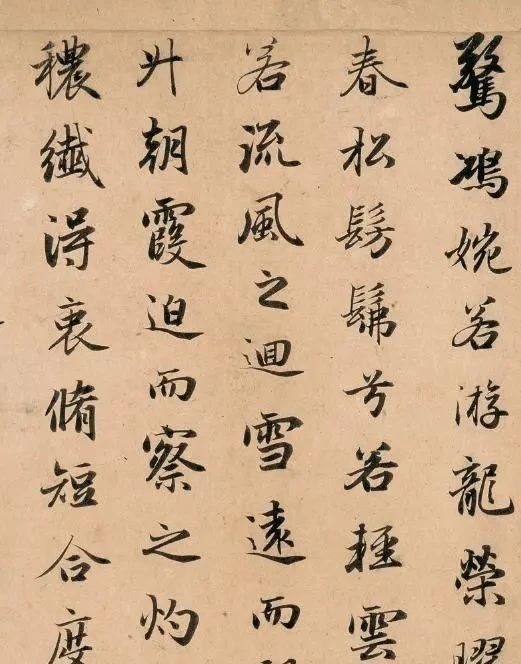 驚鴻婉若游龍榮曜
春松髣髴兮若輕雲
若流風之迴雪遠而
升朝霞迫而察之灼
穠纖得衷脩短合度